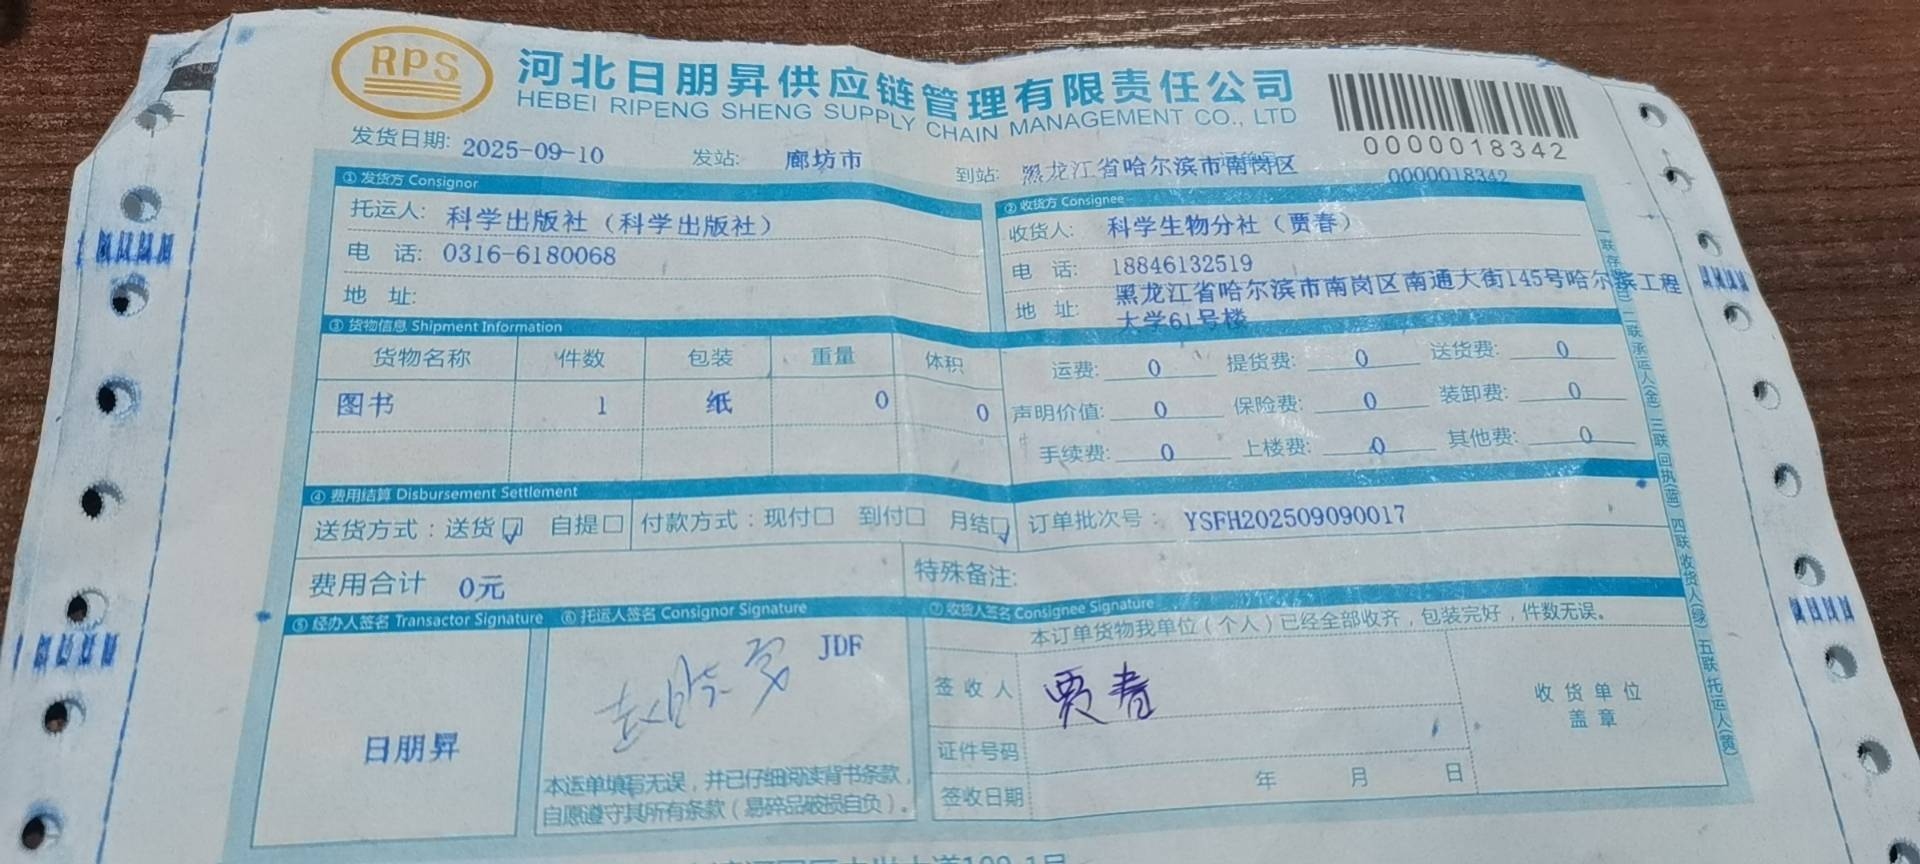 RPS
河北日朋昇供应链管理有限责任公司
HEBEI RIPENG SHENG SUPPLY CHAIN MANAGEMENT CO., LTD
0000018342
发货日期: 2025-09-10 发站: 廊坊市 到站: 黑龙江省哈尔滨市南岗区 0000018342
① 发货方 Consignor
托运人: 科学出版社（科学出版社）
电 话: 0316-6180068
地 址:
② 收货方 Consignee
收货人: 科学生物分社（贾春）
电 话: 18846132519
地 址: 黑龙江省哈尔滨市南岗区南通大街145号哈尔滨工程
大学61号楼
③ 货物信息 Shipment Information
货物名称 件数 包装 重量 体积
图书 1 纸 0 0
运费: 0 提货费: 0 送货费: 0
声明价值: 0 保险费: 0 装卸费: 0
手续费: 0 上楼费: 0 其他费: 0
④ 费用结算 Disbursement Settlement
送货方式：送货☑ 自提☐ 付款方式：现付☐ 到付☐ 月结☑ 订单批次号： YSFH202509090017
费用合计 0元 特殊备注:
⑤ 经办人签名 Transactor Signature
日朋昇
⑥ 托运人签名 Consignor Signature
JDF
本运单填写无误，并已仔细阅读背书条款，
自愿遵守其所有条款（易碎品破损自负）。
⑦ 收货人签名 Consignee Signature
本订单货物我单位（个人）已经全部收齐，包装完好，件数无误。
签收人 贾春
证件号码
签收日期 年 月 日
收货单位
盖章
二联 承运人(金) 三联 回执(蓝) 四联 收货人(绿) 五联 托运人(黄)